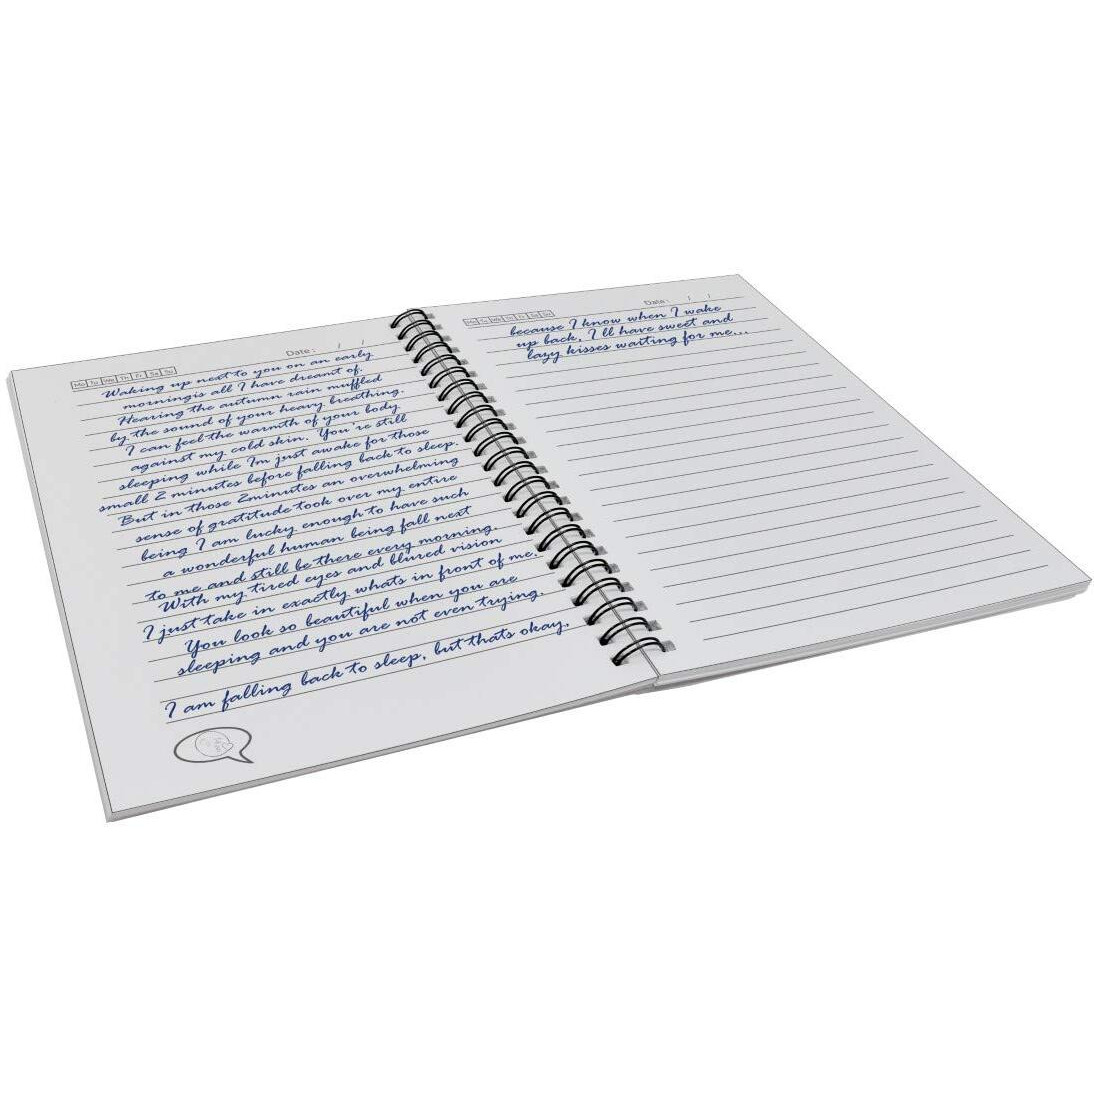 Mo Tu We Th Fr Sa Su
Date: / /
Waking up next to you on an early
morningis all I have dreamt of.
Hearing the autumn rain muffled
by the sound of your heavy breathing.
I can feel the warmth of your body
against my cold skin. You're still
sleeping while Im just awake for those
small 2 minutes before falling back to sleep.
But in those 2minutes an overwhelming
sense of gratitude took over my entire
being I am lucky enough to have such
a wonderful human being fall next
to me and still be there every morning.
With my tired eyes and blured vision
I just take in exactly whats in front of me.
You look so beautiful when you are
sleeping and you are not even trying.
I am falling back to sleep, but thats okay,
Mo Tu We Th Fr Sa Su
Date: / /
because I know when I wake
up back, I'll have sweet and
lazy kisses waiting for me...